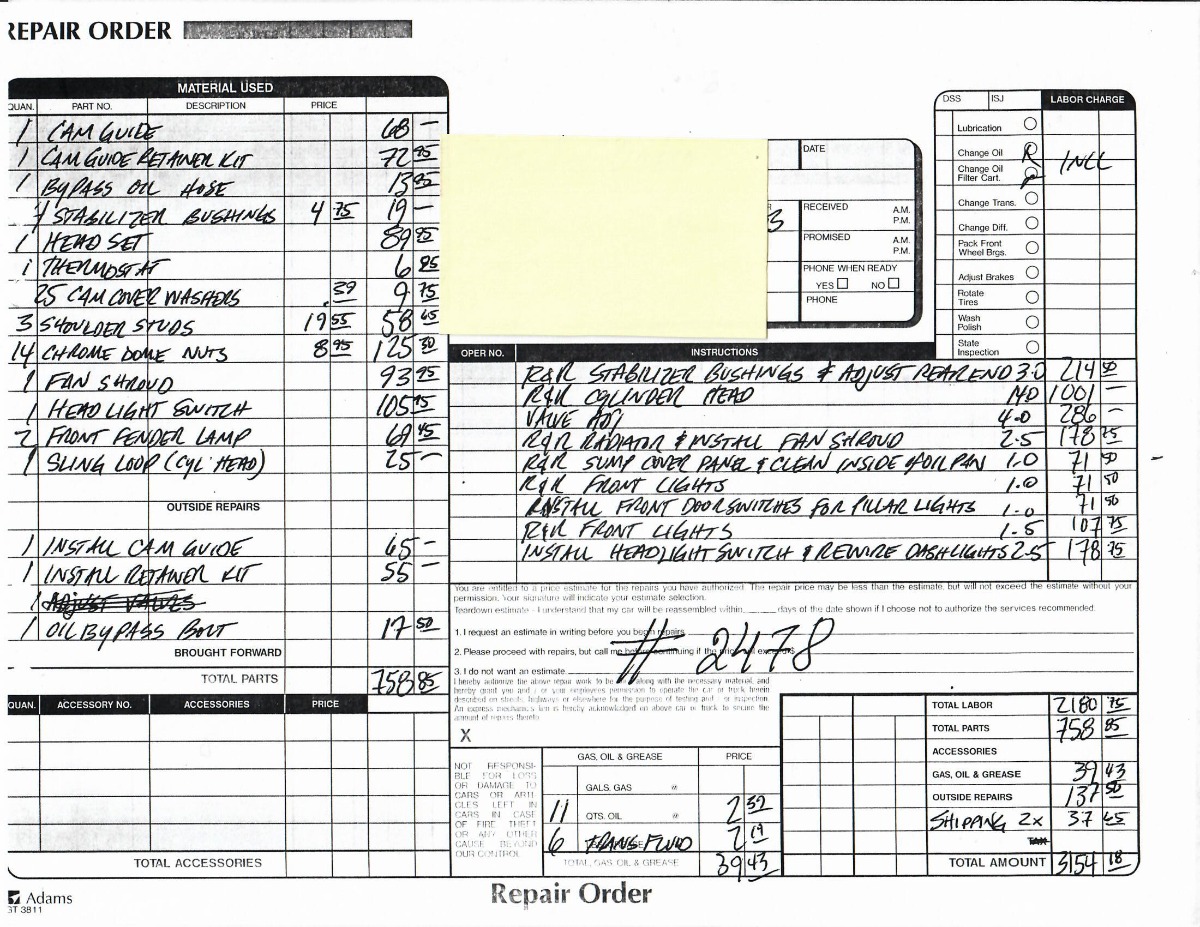 REPAIR ORDER
MATERIAL USED
QUAN. PART NO. DESCRIPTION PRICE
1 CAM GUIDE 68 —
1 CAM GUIDE RETAINER KIT 72 95
1 BYPASS OIL HOSE 13 95
STABILIZER BUSHINGS 4 75 19 —
1 HEAD SET 89 95
1 THERMOSTAT 6 95
25 CAM COVER WASHERS .39 9 75
3 SHOULDER STUDS 19 55 58 65
14 CHROME DOME NUTS 8 95 125 30
1 FAN SHROUD 93 95
1 HEADLIGHT SWITCH 105 95
2 FRONT FENDER LAMP 69 45
1 SLING LOOP (CYL HEAD) 25 —
OUTSIDE REPAIRS
1 INSTALL CAM GUIDE 65 —
1 INSTALL RETAINER KIT 55 —
1 ADJUST VALVES
1 OIL BYPASS BOLT 17 50
BROUGHT FORWARD
TOTAL PARTS 758 85
QUAN. ACCESSORY NO. ACCESSORIES PRICE
TOTAL ACCESSORIES
Adams
GT 3811
DATE
3 RECEIVED A.M.
P.M.
PROMISED A.M.
P.M.
PHONE WHEN READY
YES NO
PHONE
DSS ISJ LABOR CHARGE
Lubrication
Change Oil
Change Oil
Filter Cart.
INCL
Change Trans.
Change Diff.
Pack Front
Wheel Brgs.
Adjust Brakes
Rotate
Tires
Wash
Polish
State
Inspection
OPER NO. INSTRUCTIONS
R&R STABILIZER BUSHINGS & ADJUST REAR END 3.0 214 50
R&R CYLINDER HEAD 14.0 1001 —
VALVE ADJ 4.0 286 —
R&R RADIATOR & INSTALL FAN SHROUD 2.5 178 75
R&R SUMP COVER PANEL & CLEAN INSIDE OF OIL PAN 1.0 71 50
R&R FRONT LIGHTS 1.0 71 50
INSTALL FRONT DOOR SWITCHES FOR PILLAR LIGHTS 1.0 71 50
R&R FRONT LIGHTS 1.5 107 75
INSTALL HEADLIGHT SWITCH & REWIRE DASH LIGHTS 2.5 178 75
You are entitled to a price estimate for the repairs you have authorized. The repair price may be less than the estimate, but will not exceed the estimate without your
permission. Your signature will indicate your estimate selection.
Teardown estimate - I understand that my car will be reassembled within _____ days of the date shown if I choose not to authorize the services recommended.
1. I request an estimate in writing before you begin repairs
2. Please proceed with repairs, but call me before continuing if the price will exceed $
3. I do not want an estimate
# 2478
I hereby authorize the above repair work to be done along with the necessary material, and
hereby grant you and / or your employees permission to operate the car or truck herein
described on streets, highways or elsewhere for the purpose of testing and / or inspection.
An express mechanic's lien is hereby acknowledged on above car or truck to secure the
amount of repairs thereto.
X
NOT RESPONSI-
BLE FOR LOSS
OR DAMAGE TO
CARS OR ARTI-
CLES LEFT IN
CARS IN CASE
OF FIRE THEFT
OR ANY OTHER
CAUSE BEYOND
OUR CONTROL
GAS, OIL & GREASE PRICE
GALS. GAS @
11 QTS. OIL @ 2 52
6 TRANS FLUID 2 19
TOTAL GAS OIL & GREASE 39 43
TOTAL LABOR 2180 75
TOTAL PARTS 758 85
ACCESSORIES
GAS, OIL & GREASE 39 43
OUTSIDE REPAIRS 137 50
SHIPPING 2x 37 65
TAX
TOTAL AMOUNT 3154 18
Repair Order